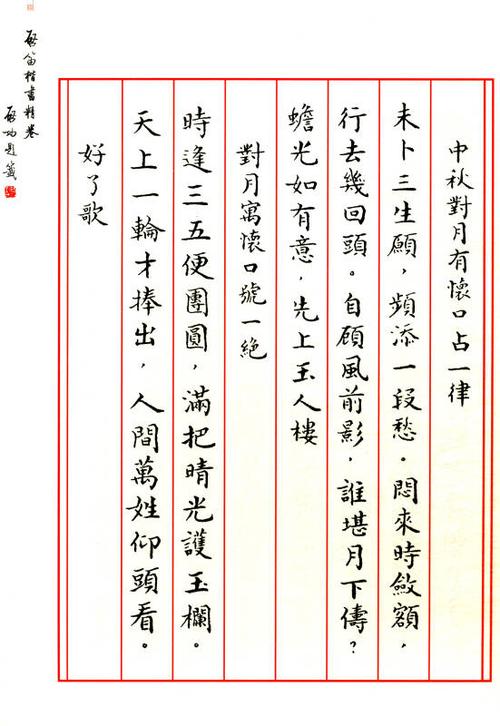 中秋對月有懷口占一律
未卜三生願，頻添一段愁。悶來時斂額，
行去幾回頭。自顧風前影，誰堪月下儔？
蟾光如有意，先上玉人樓
對月寓懷口號一絕
時逢三五便團圓，滿把晴光護玉欄。
天上一輪才捧出，人間萬姓仰頭看。
好了歌
啓笛楷書精卷
啓功題籤